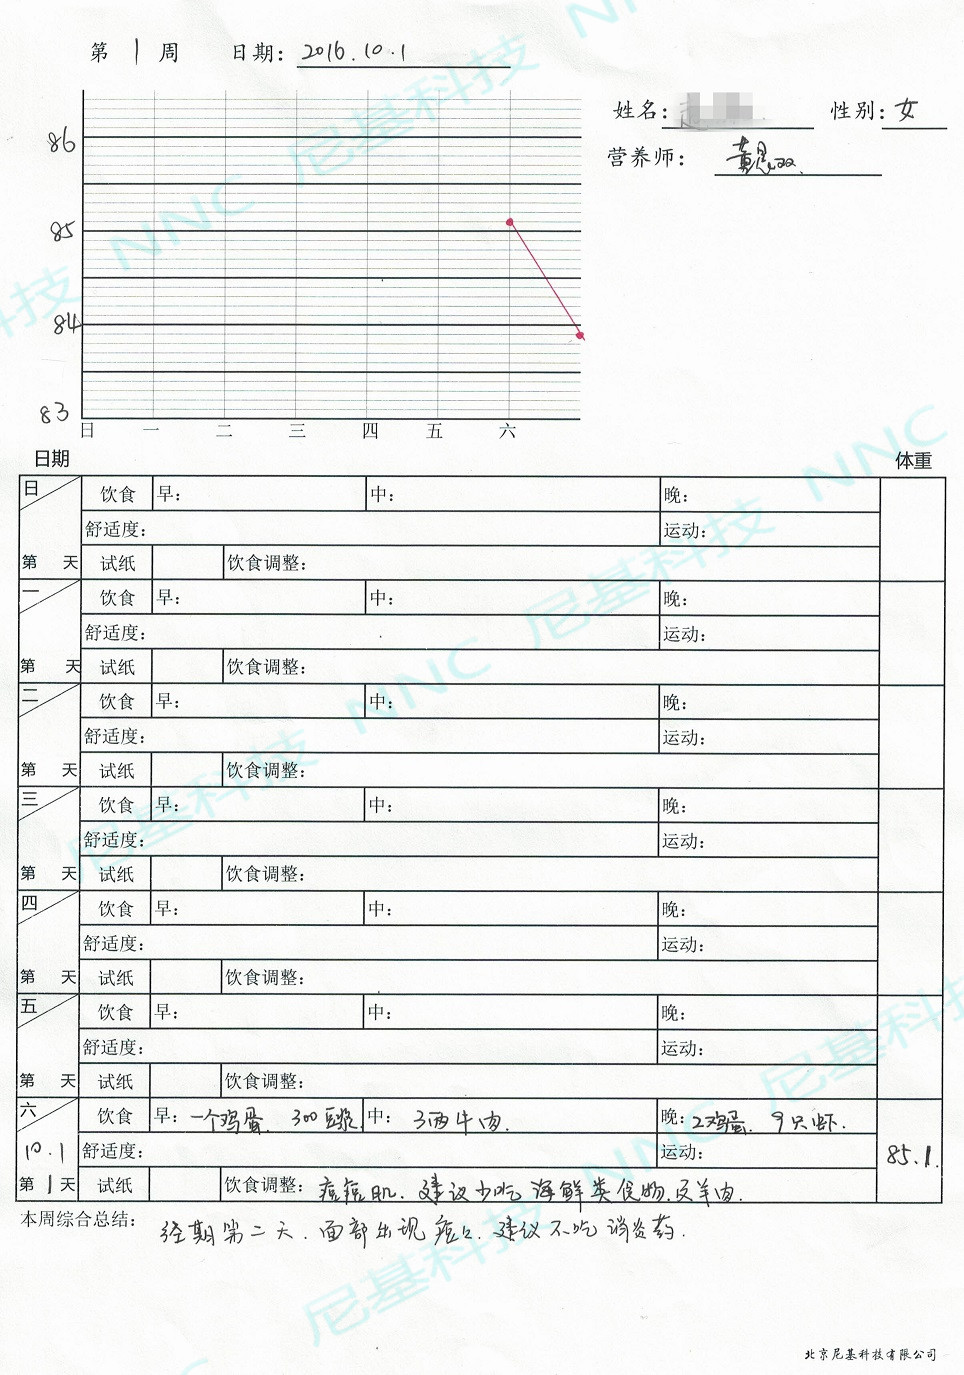 第 1 周 日期: 2016.10.1
姓名: 性别: 女
营养师:
86
85
84
83
日 一 二 三 四 五 六
日期 体重
日 饮食 早: 中: 晚:
舒适度: 运动:
第 天 试纸 饮食调整:
一 饮食 早: 中: 晚:
舒适度: 运动:
第 天 试纸 饮食调整:
二 饮食 早: 中: 晚:
舒适度: 运动:
第 天 试纸 饮食调整:
三 饮食 早: 中: 晚:
舒适度: 运动:
第 天 试纸 饮食调整:
四 饮食 早: 中: 晚:
舒适度: 运动:
第 天 试纸 饮食调整:
五 饮食 早: 中: 晚:
舒适度: 运动:
第 天 试纸 饮食调整:
六 饮食 早: 一个鸡蛋、300豆浆 中: 3两牛肉. 晚: 2鸡蛋、9只虾.
10.1 舒适度: 运动: 85.1.
第 1 天 试纸 饮食调整: 痘痘肌.建议少吃海鲜类食物.及羊肉.
本周综合总结: 经期第二天.面部出现痘痘.建议不吃消炎药.
北京尼基科技有限公司
尼基科技 NNC